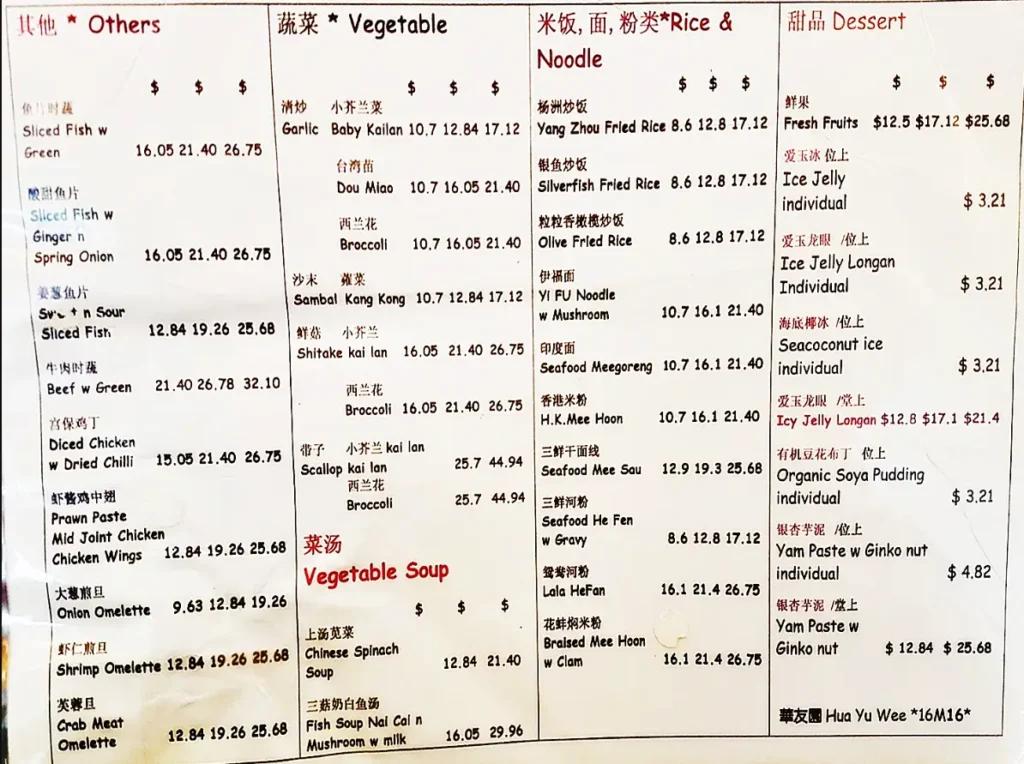 其他 * Others
$ $ $
鱼片时蔬
Sliced Fish w
Green 16.05 21.40 26.75
酸甜鱼片
Sliced Fish w
Ginger n
Spring Onion 16.05 21.40 26.75
姜葱鱼片
n Sour
Sliced Fish 12.84 19.26 25.68
牛肉时蔬
Beef w Green 21.40 26.78 32.10
宫保鸡丁
Diced Chicken
w Dried Chilli 15.05 21.40 26.75
虾酱鸡中翅
Prawn Paste
Mid Joint Chicken
Chicken Wings 12.84 19.26 25.68
大葱煎旦
Onion Omelette 9.63 12.84 19.26
虾仁煎旦
Shrimp Omelette 12.84 19.26 25.68
芙蓉旦
Crab Meat
Omelette 12.84 19.26 25.68
蔬菜 * Vegetable
$ $ $
清炒 小芥兰菜
Garlic Baby Kailan 10.7 12.84 17.12
台湾苗
Dou Miao 10.7 16.05 21.40
西兰花
Broccoli 10.7 16.05 21.40
沙末 蕹菜
Sambal Kang Kong 10.7 12.84 17.12
鲜菇 小芥兰
Shitake kai lan 16.05 21.40 26.75
西兰花
Broccoli 16.05 21.40 26.75
带子 小芥兰 kai lan
Scallop kai lan 25.7 44.94
西兰花
Broccoli 25.7 44.94
菜汤
Vegetable Soup
$ $ $
上汤苋菜
Chinese Spinach
Soup 12.84 21.40
三菇奶白鱼汤
Fish Soup Nai Cai n
Mushroom w milk 16.05 29.96
米饭, 面, 粉类*Rice &
Noodle
$ $ $
杨洲炒饭
Yang Zhou Fried Rice 8.6 12.8 17.12
银鱼炒饭
Silverfish Fried Rice 8.6 12.8 17.12
粒粒香橄榄炒饭
Olive Fried Rice 8.6 12.8 17.12
伊福面
Yi FU Noodle
w Mushroom 10.7 16.1 21.40
印度面
Seafood Meegoreng 10.7 16.1 21.40
香港米粉
H.K.Mee Hoon 10.7 16.1 21.40
三鲜干面线
Seafood Mee Sau 12.9 19.3 25.68
三鲜河粉
Seafood He Fen
w Gravy 8.6 12.8 17.12
鸳鸯河粉
Lala HeFan 16.1 21.4 26.75
花蚌焖米粉
Braised Mee Hoon
w Clam 16.1 21.4 26.75
甜品 Dessert
$ $ $
鲜果
Fresh Fruits $12.5 $17.12 $25.68
爱玉冰 位上
Ice Jelly
individual $ 3.21
爱玉龙眼 /位上
Ice Jelly Longan
Individual $ 3.21
海底椰冰 /位上
Seacoconut ice
individual $ 3.21
爱玉龙眼 /堂上
Icy Jelly Longan $12.8 $17.1 $21.4
有机豆花布丁 位上
Organic Soya Pudding
individual $ 3.21
银杏芋泥 /位上
Yam Paste w Ginko nut
individual $ 4.82
银杏芋泥 /堂上
Yam Paste w
Ginko nut $ 12.84 $ 25.68
華友園 Hua Yu Wee *16M16*